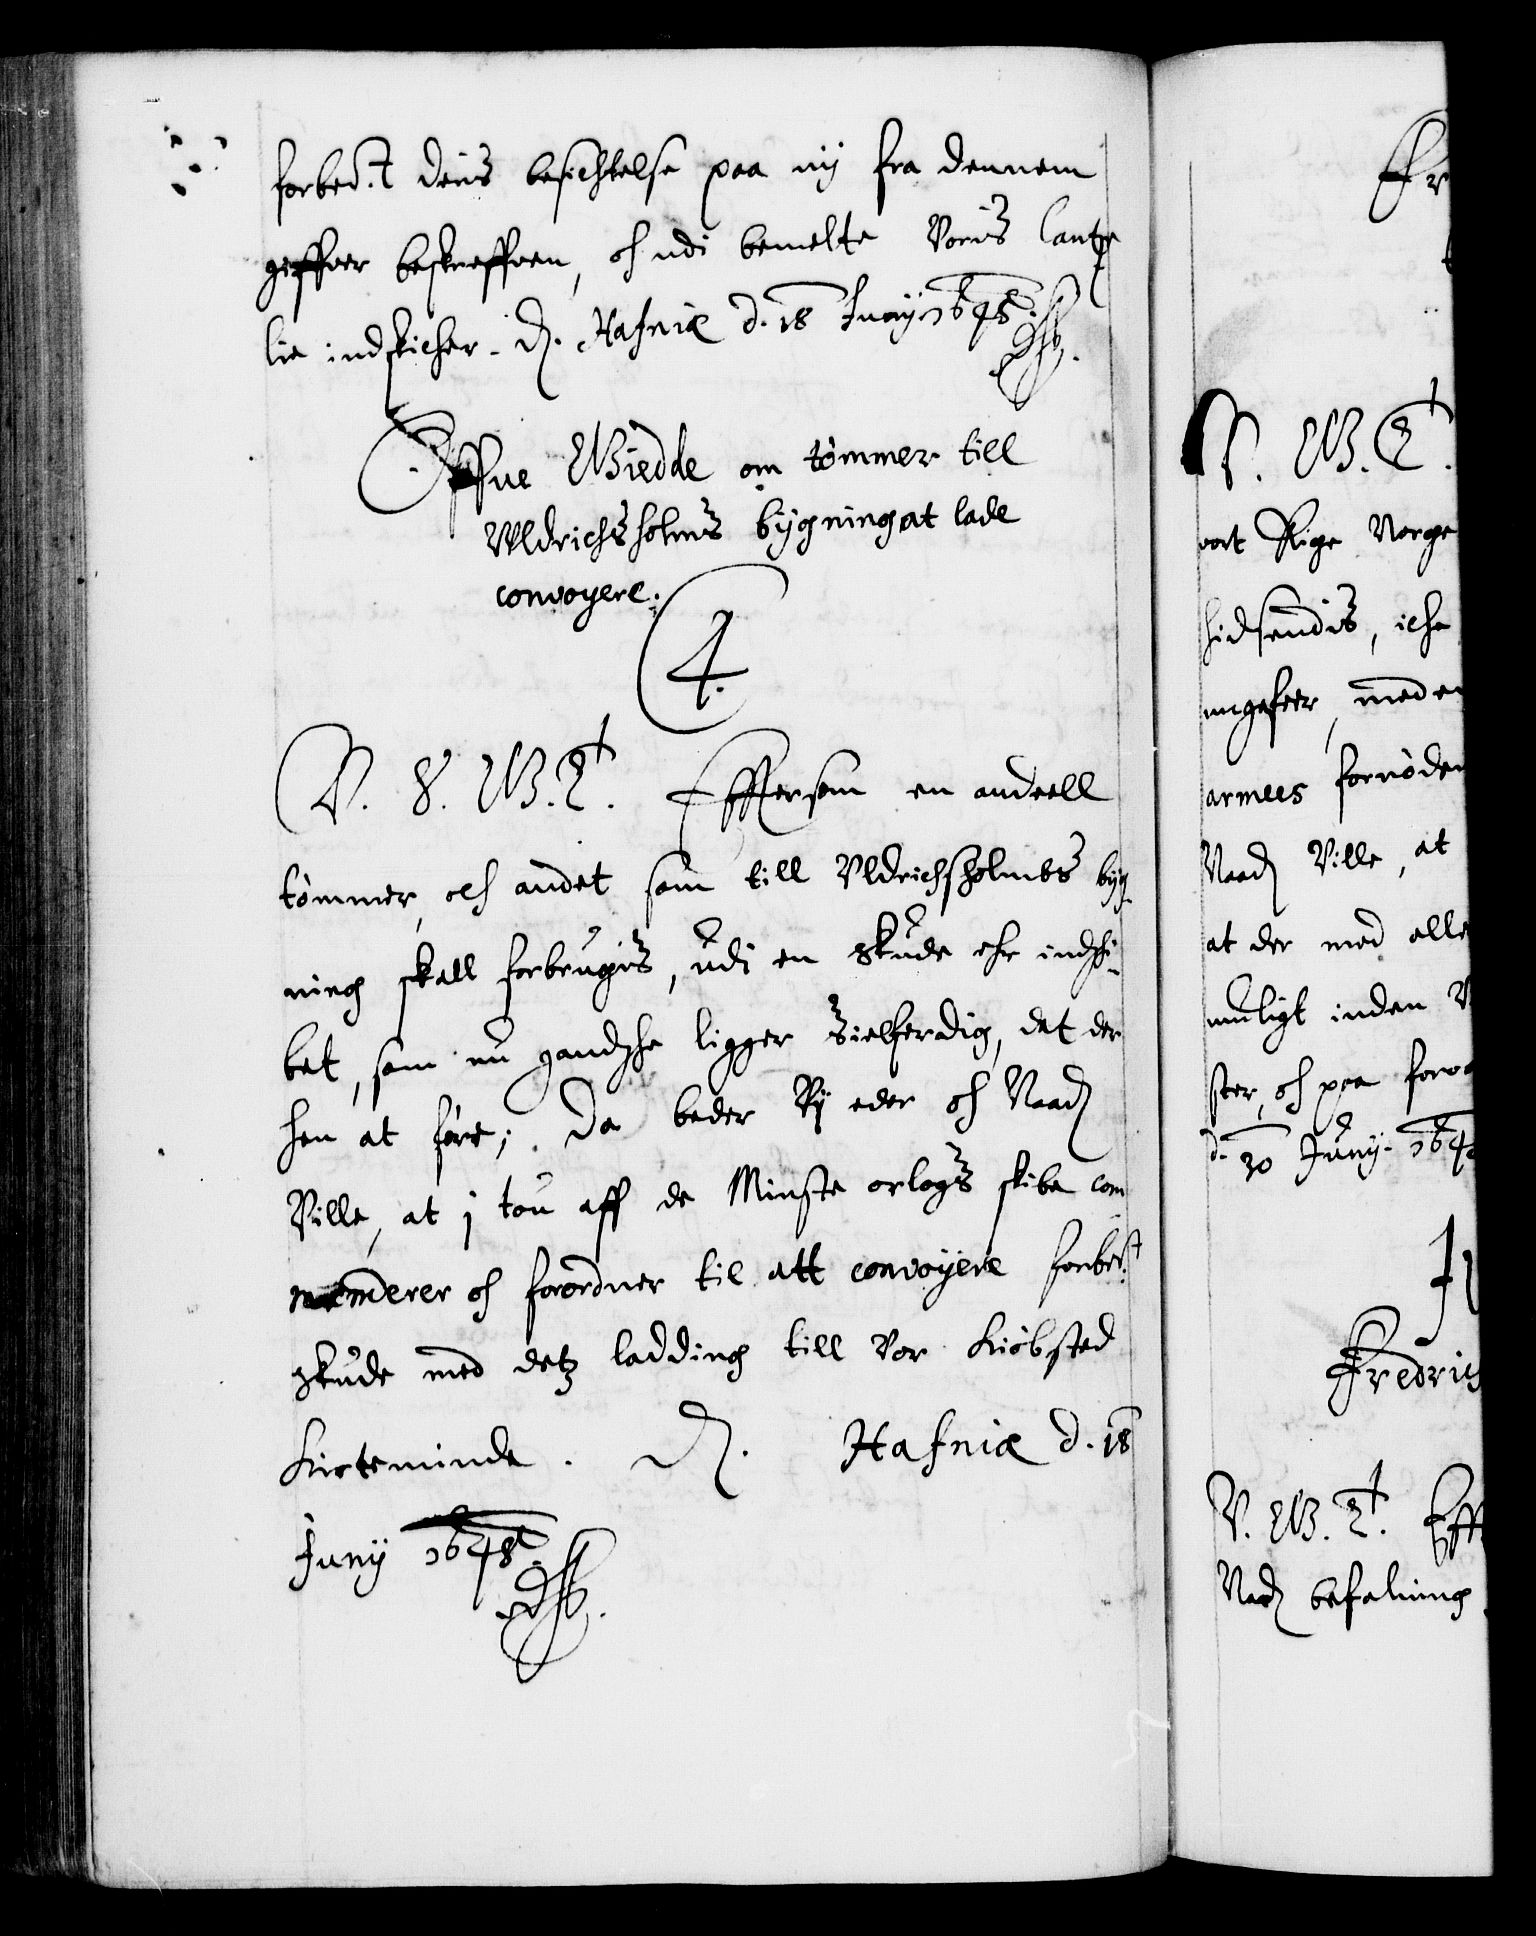 forbed.t deris besichtelse paa ny fra dennem
giffver beskreffven, och udi bemelte Voris Cantze
lie indskicher. D. Hafniæ d. 18 Juny 1648.
Offve Giedde om tømmer till
Vldrichsholms bygning at lade
convoyere.
4.
V. G. T. Effttersom en andeell
tømmer, och andet som till Vldrichsholmes byg-
ning skall forbrugis, udi en skude ehr indski-
bet, som nu gandske ligger seielferdig, det der
hen at føre; Da beder Vy eder och Naad.
Ville, at j tou aff de Minste orlogs skibe com
menderer och forordner til att convoyere forbe.t
skude med detz ladding till Vor Kiøbsted
Kierteminde. D. Hafniæ d. 18
Juny 1648.
Fr
V. G. T.
vort Rige Norge
hidsendis, iche
ungefeer, meden
armees fornøden
Naad. Ville, at
at der med alle
muligt inden V
ster, och paa forva
d. 30 Juny. 164
Fredrich
V. G. T. Eff
Naad. befalning